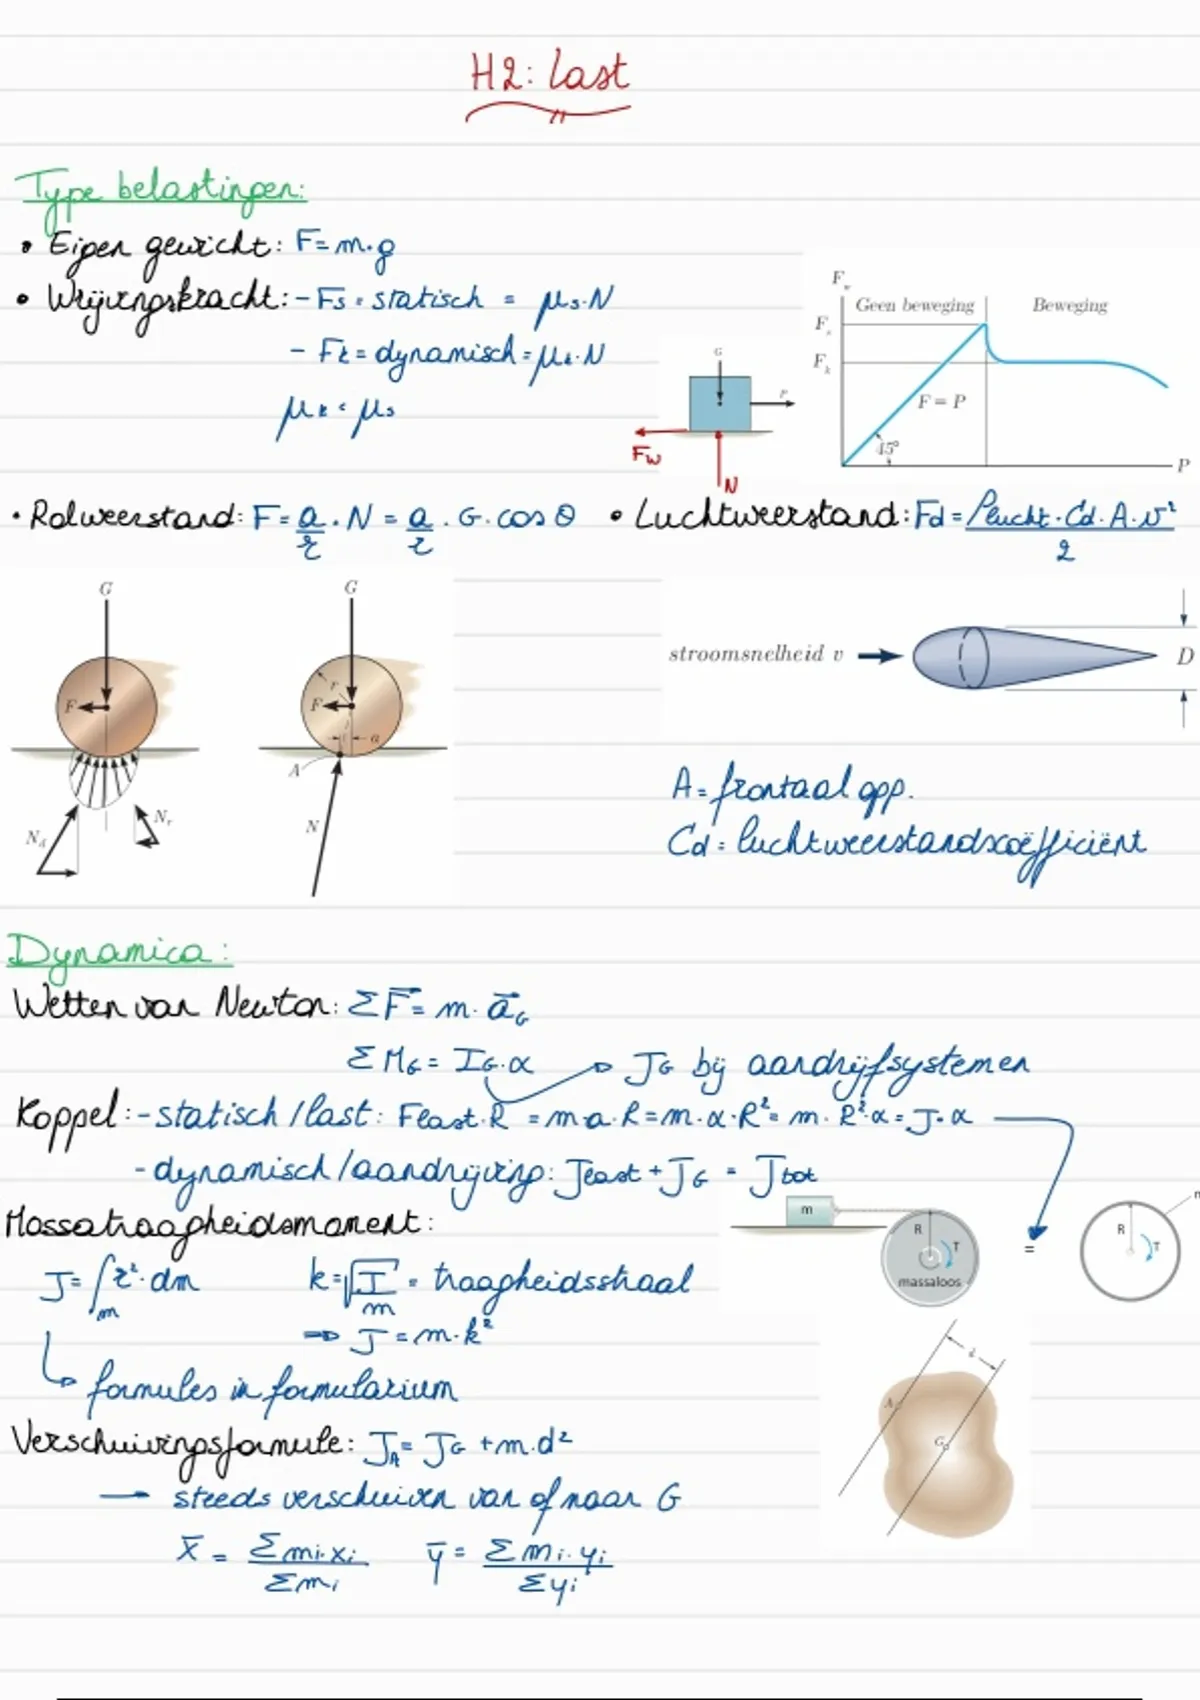 H2: Last
Type belastingen:
• Eigen gewicht: F = m·g
• Wrijvingskracht: - Fs = statisch = μs·N
- Fk = dynamisch = μk·N
μk < μs
G
P
Fw
N
Fw
Geen beweging
Beweging
Fs
Fk
F = P
45°
P
• Rolweerstand: F = a/r · N = a/r · G · cos θ
• Luchtweerstand: Fd = ρlucht · Cd · A · v² / 2
G
F
Nd
Nr
G
r
F
a
A
N
stroomsnelheid v
D
A = frontaal opp.
Cd = luchtweerstandscoëfficiënt
Dynamica:
Wetten van Newton: ΣF⃗ = m·a⃗G
ΣMG = IG·α → JG bij aandrijfsystemen
Koppel: - statisch / last: Flast·R = m·a·R = m·α·R² = m·R²·α = J·α
- dynamisch / aandrijving: Jlast + JG = Jtot
Massatraagheidsmoment:
m
R
T
massaloos
=
R
T
m
J = ∫m r²·dm
k = √(I/m) = traagheidsstraal
⇒ J = m·k²
↳ formules in formularium
d
A
G
Verschuivingsformule: JA = JG + m·d²
→ steeds verschuiven van of naar G
x̄ = Σmi·xi / Σmi
ȳ = Σmi·yi / Σyi